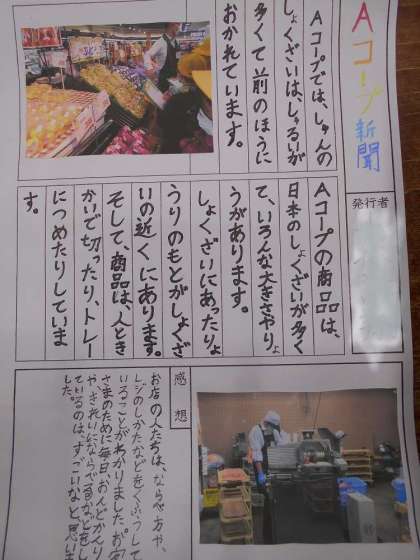 Aコープ新聞
発行者
Aコープでは、しゅんの
しょくざいは、しゅるいが
多くて前のほうに
おかれています。
Aコープの商品は、
日本のしょくざいが多く
て、いろんな大きさやりょ
うがあります。
しょくざいにあったりょ
うりのもとがしょくざ
いの近くにあります。
そして、商品は、人とき
かいで切ったり、トレー
につめたりしていま
す。
感想
お店の人たちは、ならべ方や、
レジのしかたなどをくふうして
いることがわかりました。お客
さまのために毎日、おんどかんり
や、きれいにならべるなどをし
ているのは、すごいなと思いま
した。